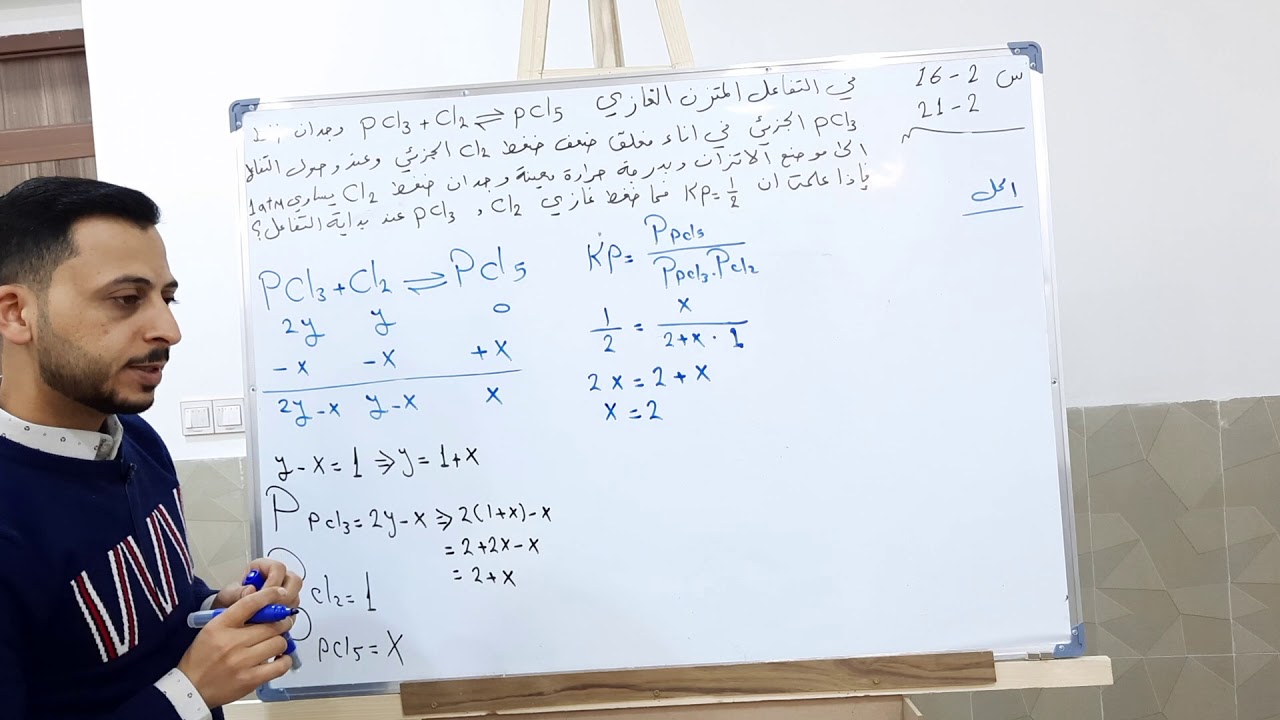 س 2 - 16
2 - 21
في التفاعل المتزن الغازي PCl3 + Cl2 ⇌ PCl5 وجد ان
PCl3 الجزئي في اناء مغلق ضعف ضغط Cl2 الجزئي وعند وصول
الى موضع الاتزان وبدرجة حرارة معينة وجد ان ضغط Cl2 يساوي 1atm
فإذا علمت ان KP = 1/2 فما ضغط غازي Cl2 و PCl3 عند بداية التفاعل؟
الحل
PCl3 + Cl2 ⇌ PCl5
2y y 0
-x -x +x
2y-x y-x x
y-x=1 ⇒ y=1+x
P PCl3 = 2y-x ⇒ 2(1+x)-x
= 2+2x-x
= 2+x
P Cl2 = 1
P PCl5 = x
KP = P PCl5 / P PCl3 . P Cl2
1/2 = x / 2+x . 1
2x = 2+x
x = 2